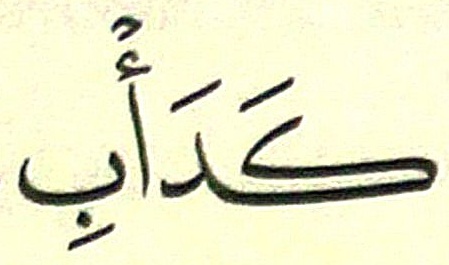 كَدَأْبِ